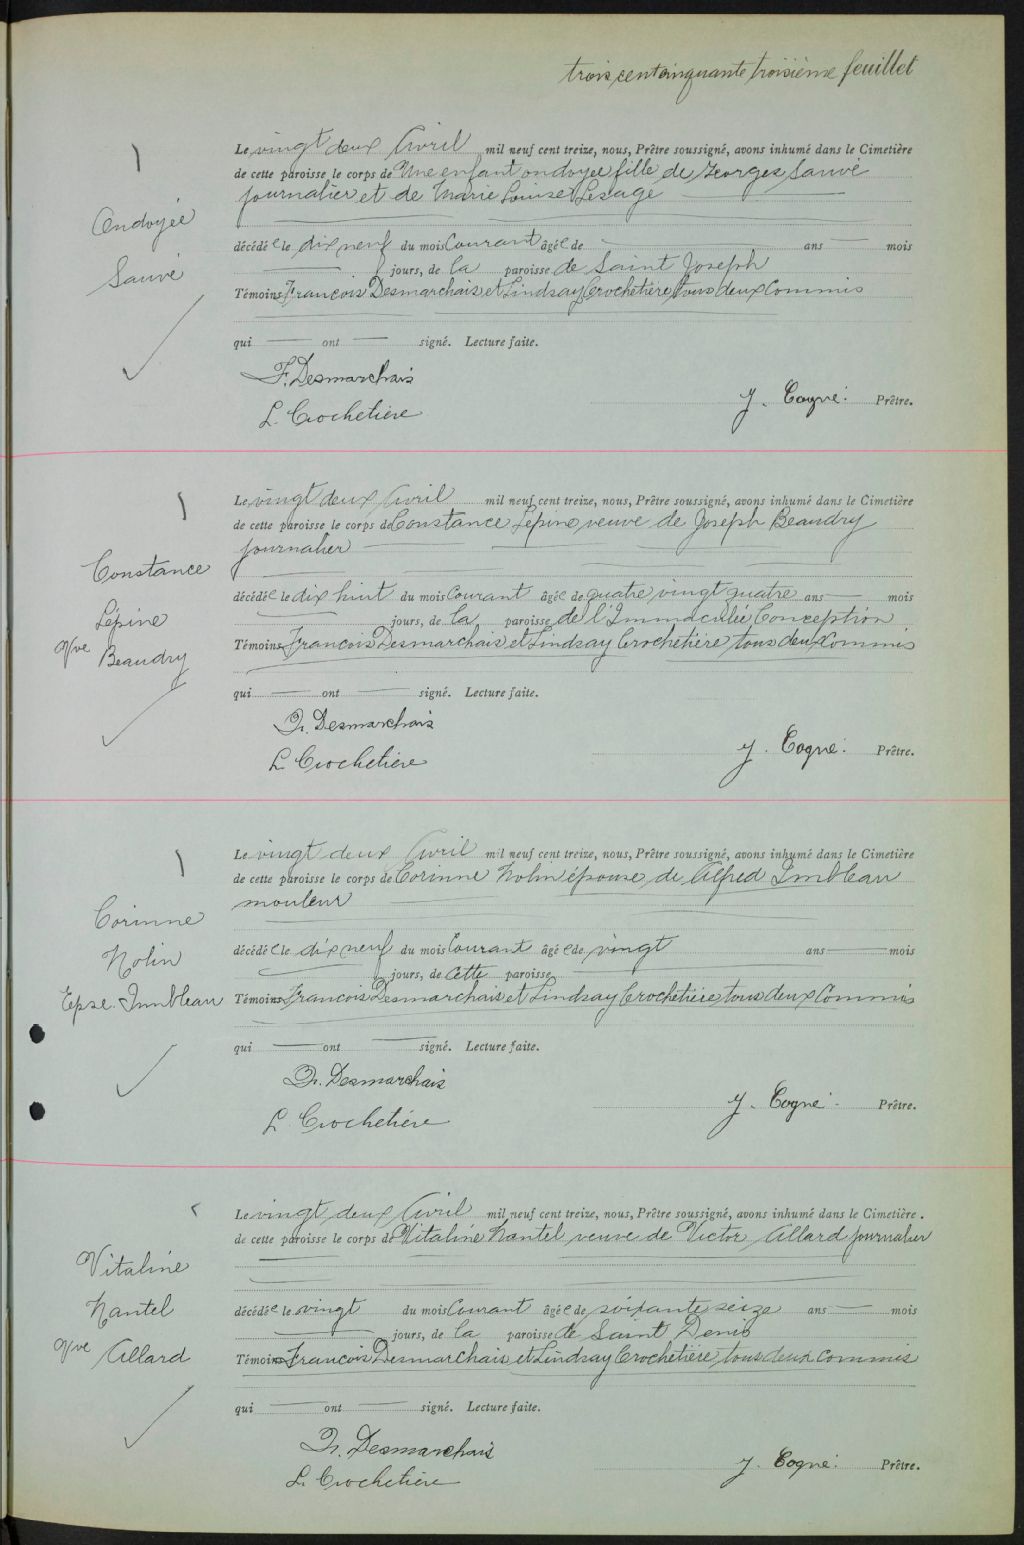 trois cent cinquante troisième feuillet
Le vingt deux Avril mil neuf cent treize, nous, Prêtre soussigné, avons inhumé dans le Cimetière
de cette paroisse le corps de Une enfant ondoyée fille de Georges Sauvé
journalier et de Marie Louise Lesage
Ondoyée
Sauvé
décédée le dix neuf du mois Courant âgée de ans mois
jours, de la paroisse de Saint Joseph
Témoins François Desmarchais et Lindsay Crochetière, tous deux Commis
qui ont signé. Lecture faite.
F. Desmarchais
L. Crochetière
J. Cogné. Prêtre.
Le vingt deux Avril mil neuf cent treize, nous, Prêtre soussigné, avons inhumé dans le Cimetière
de cette paroisse le corps de Constance Lépine veuve de Joseph Beaudry
journalier
Constance
Lépine
Vve Beaudry
décédée le dix huit du mois Courant âgée de quatre vingt quatre ans mois
jours, de la paroisse de l'Immaculée Conception
Témoins François Desmarchais et Lindsay Crochetière tous deux Commis
qui ont signé. Lecture faite.
Fr. Desmarchais
L. Crochetière
J. Cogné. Prêtre.
Le vingt deux Avril mil neuf cent treize, nous, Prêtre soussigné, avons inhumé dans le Cimetière
de cette paroisse le corps de Corinne Nolin épouse de Alfred Imbleau
mouleur
Corinne
Nolin
Epse. Imbleau
décédée le dix neuf du mois Courant âgée de vingt ans mois
jours, de Cette paroisse
Témoins François Desmarchais et Lindsay Crochetière, tous deux Commis
qui ont signé. Lecture faite.
Fr. Desmarchais
L. Crochetière
J. Cogné. Prêtre.
Le vingt deux Avril mil neuf cent treize, nous, Prêtre soussigné, avons inhumé dans le Cimetière.
de cette paroisse le corps de Vitaline Nantel veuve de Victor Allard journalier
Vitaline
Nantel
Vve Allard
décédée le vingt du mois Courant âgée de soixante seize ans mois
jours, de la paroisse de Saint Denis
Témoins François Desmarchais et Lindsay Crochetière, tous deux commis
qui ont signé. Lecture faite.
Fr. Desmarchais
L. Crochetière
J. Cogné. Prêtre.